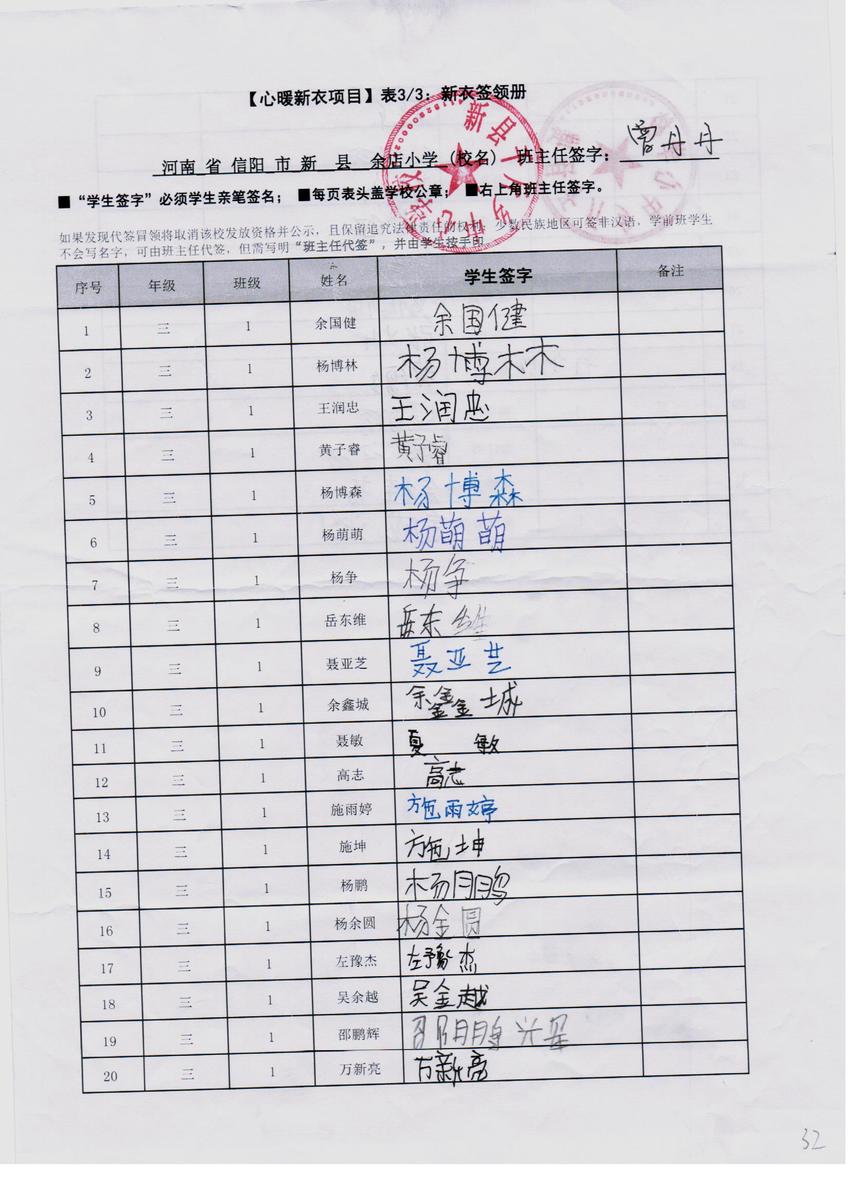 【心暖新衣项目】表3/3：新衣签领册
河南 省 信阳 市 新 县 余店小学（校名） 班主任签字：曾丹丹
■“学生签字”必须学生亲笔签名；■每页表头盖学校公章；■右上角班主任签字。
如果发现代签冒领将取消该校发放资格并公示，且保留追究法律责任的权利。少数民族地区可签非汉语，学前班学生
不会写名字，可由班主任代签，但需写明“班主任代签”，并由学生按手印
序号 年级 班级 姓名 学生签字 备注
1 三 1 余国健 余国健
2 三 1 杨博林 杨博林
3 三 1 王润忠 王润忠
4 三 1 黄子睿 黄子睿
5 三 1 杨博森 杨博森
6 三 1 杨萌萌 杨萌萌
7 三 1 杨争 杨争
8 三 1 岳东维 岳东维
9 三 1 聂亚芝 聂亚芝
10 三 1 余鑫城 余鑫城
11 三 1 聂敏 夏敏
12 三 1 高志 高志
13 三 1 施雨婷 施雨婷
14 三 1 施坤 施坤
15 三 1 杨鹏 杨鹏
16 三 1 杨余圆 杨余圆
17 三 1 左豫杰 左豫杰
18 三 1 吴余越 吴金越
19 三 1 邵鹏辉 邵鹏辉
20 三 1 万新亮 万新亮
32